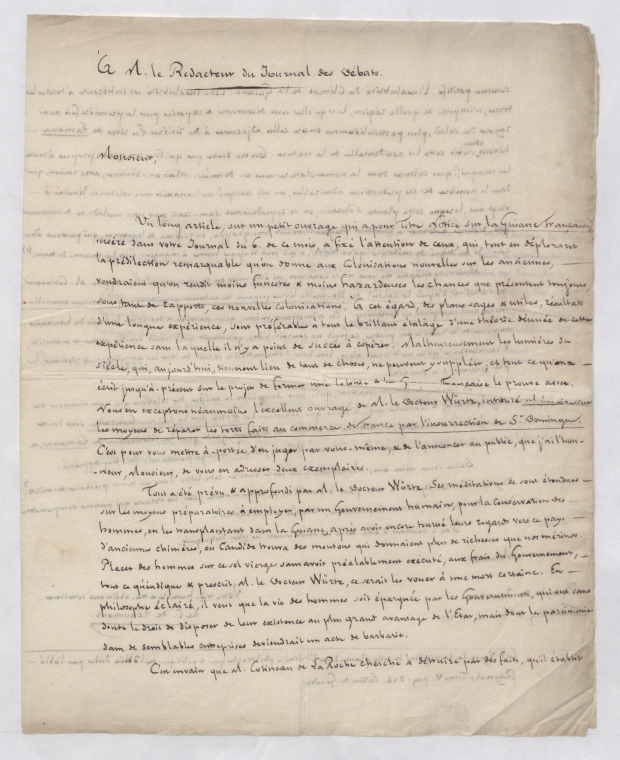 À M. le Redacteur du Journal des Débats.
Monsieur,
Un long article, sur un petit ouvrage qui a pour titre Notice sur la Guiane Française,
inséré dans votre Journal du 6. de ce mois, a fixé l'attention de ceux, qui, tout en déplorant
la prédilection remarquable qu'on donne aux Colonisations nouvelles sur les anciennes,
voudraient qu'on rendît moins funestes & moins hazardeuses les chances que présentent toujours
sous tant de rapports, ces nouvelles colonisations. À cet égard, des plans sages & utiles, résultats
d'une longue expérience, sont préférables à tout le brillant étalage d'une théorie dénuée de cette
expérience sans laquelle il n'y a point de succès à espérer. Malheureusement les lumières du
siècle, qui, aujourd'hui, tiennent lieu de tant de choses, ne peuvent y suppléer, et tout ce qu'on a
écrit jusqu'à présent sur le projet de former une Colonie à la Française le prouve assez.
Nous en exceptons néanmoins l'excellent ouvrage de M. le Docteur Würtz, intitulé
les moyens de réparer les torts faits au commerce de France par l'insurrection de St. Domingue.
C'est pour vous mettre à portée d'en juger par vous-même, & de l'annoncer au public, que j'ai l'hon-
neur, Monsieur, de vous en adresser deux exemplaires.
Tout a été prévu & approfondi par M. le Docteur Würtz. Ses méditations se sont étendues
sur les moyens préparatoires à employer, par un Gouvernement humain, pour la conservation des
hommes, en les transplantant dans la Guiane, après avoir encore tourné leurs regards vers ce pays
d'anciennes chimères, où Candide trouva des moutons qui donnaient plus de richesses que nos mérinos.
Placer des hommes sur ce sol vierge sans avoir préalablement exécuté, aux frais du Gouvernement,
tout ce qu'indique & prescrit M. le Docteur Würtz, ce serait les vouer à une mort certaine. En
philosophe éclairé, il veut que la vie des hommes soit épargnée par les Gouvernements, qui ont sans
doute le droit de disposer de leur existence au plus grand avantage de l'État, mais dont la parcimonie
dans de semblables entreprises deviendrait un acte de barbarie.
C'est en vain que M. Cotineau de La Roche cherche à détruire par des faits, qu'il établit